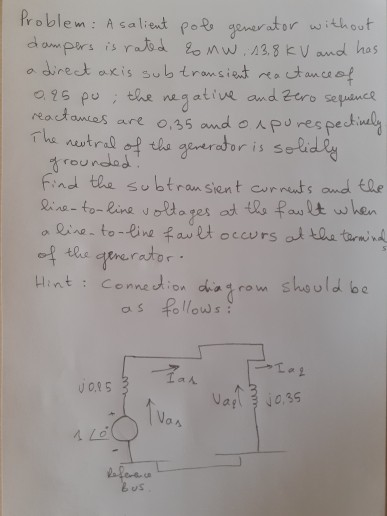 Problem: A salient pole generator without
dampers is rated 20 MW, 13.8 KV and has
a direct axis sub transient reactance of
0.25 pu ; the negative and Zero sequence
reactances are 0.35 and 0.1 pu respectively
The neutral of the generator is solidly
grounded.
Find the subtransient currents and the
line-to-line voltages at the fault when
a line-to-line fault occurs at the terminal
of the generator.
Hint : Connection diagram should be
as follows:
Ia1
Ia2
j0.25
Va1
Va2
j0.35
1∠0°
Reference
Bus.